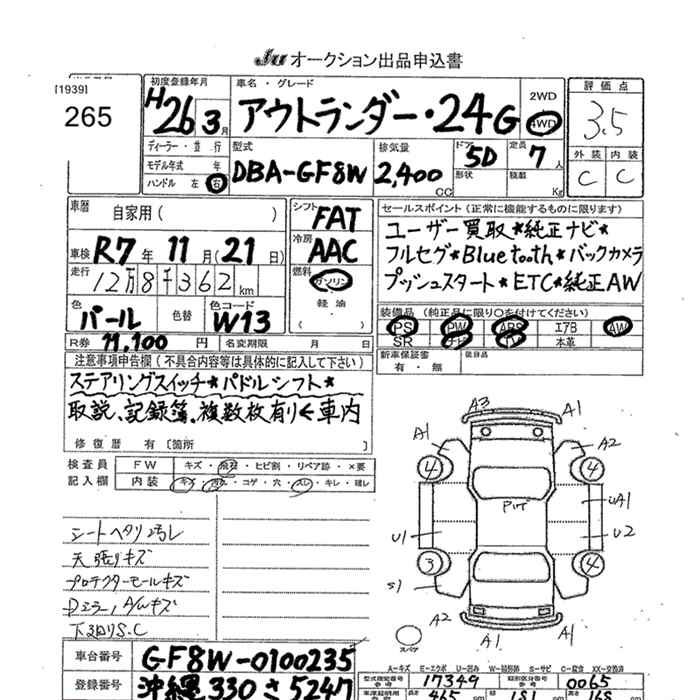 Ju オークション出品申込書
[1939]
265
初度登録年月
H26年3月
車名・グレード
アウトランダー・24G
2WD
4WD
評価点
3.5
外装 内装
C C
ディーラー・並行
モデル年式 年
ハンドル 左 右
型式
DBA-GF8W
排気量
2,400 CC
ドア
5D
形状
定員
7人
積載
Kg
車歴
自家用( )
車検 R7年11月(21日)
走行 12万8千362km
シフト
FAT
冷房
AAC
燃料
ガソリン
軽油
( )
色
パール
色替
色コード
W13
R券 11,100円
名変期限 月 日
セールスポイント(正常に機能するものに限ります)
ユーザー買取★純正ナビ★
フルセグ★Bluetooth★バックカメラ
プッシュスタート★ETC★純正AW
装備品(純正品に限り○を付けてください)
PS PW ABS エアB AW
SR ナビ TV 本革
新車保証書
有・無
後日品
注意事項申告欄(不具合内容等は具体的に記入して下さい)
ステアリングスイッチ★パドルシフト★
取説、記録簿、複数枚有り←車内
修復歴 有[箇所 ]
検査員
記入欄
FW キズ・飛石・ヒビ割・リペア跡・×要
内装 キズ・汚れ・コゲ・穴・スレ・キレ・濡レ
シートヘタリ汚レ
天張りキズ
プロテクターモールキズ
Dミラー,A/Wキズ
下廻りS.C
A3
A1
A1
A2
4
4
PナT
UA1
U1
U2
3
4
S1
A2
A1
A1
スペア
A-キズ E-エクボ U-凹み W-補修跡 S-サビ C-腐食 XX-交換済
車台番号 GF8W-0100235
登録番号 沖縄330さ5247
型式指定番号 17349
類別区分番号 0065
465 cm
181 cm
168 cm